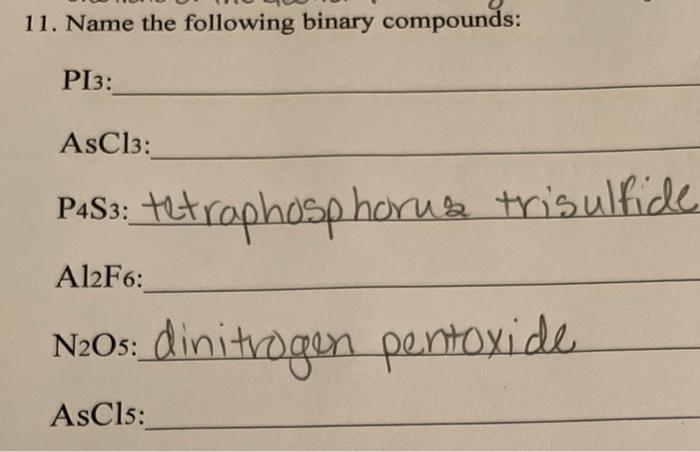 11. Name the following binary compounds:
PI3:
AsCl3:
P4S3: tetraphosphorus trisulfide
Al2F6:
N2O5: dinitrogen pentoxide
AsCl5: